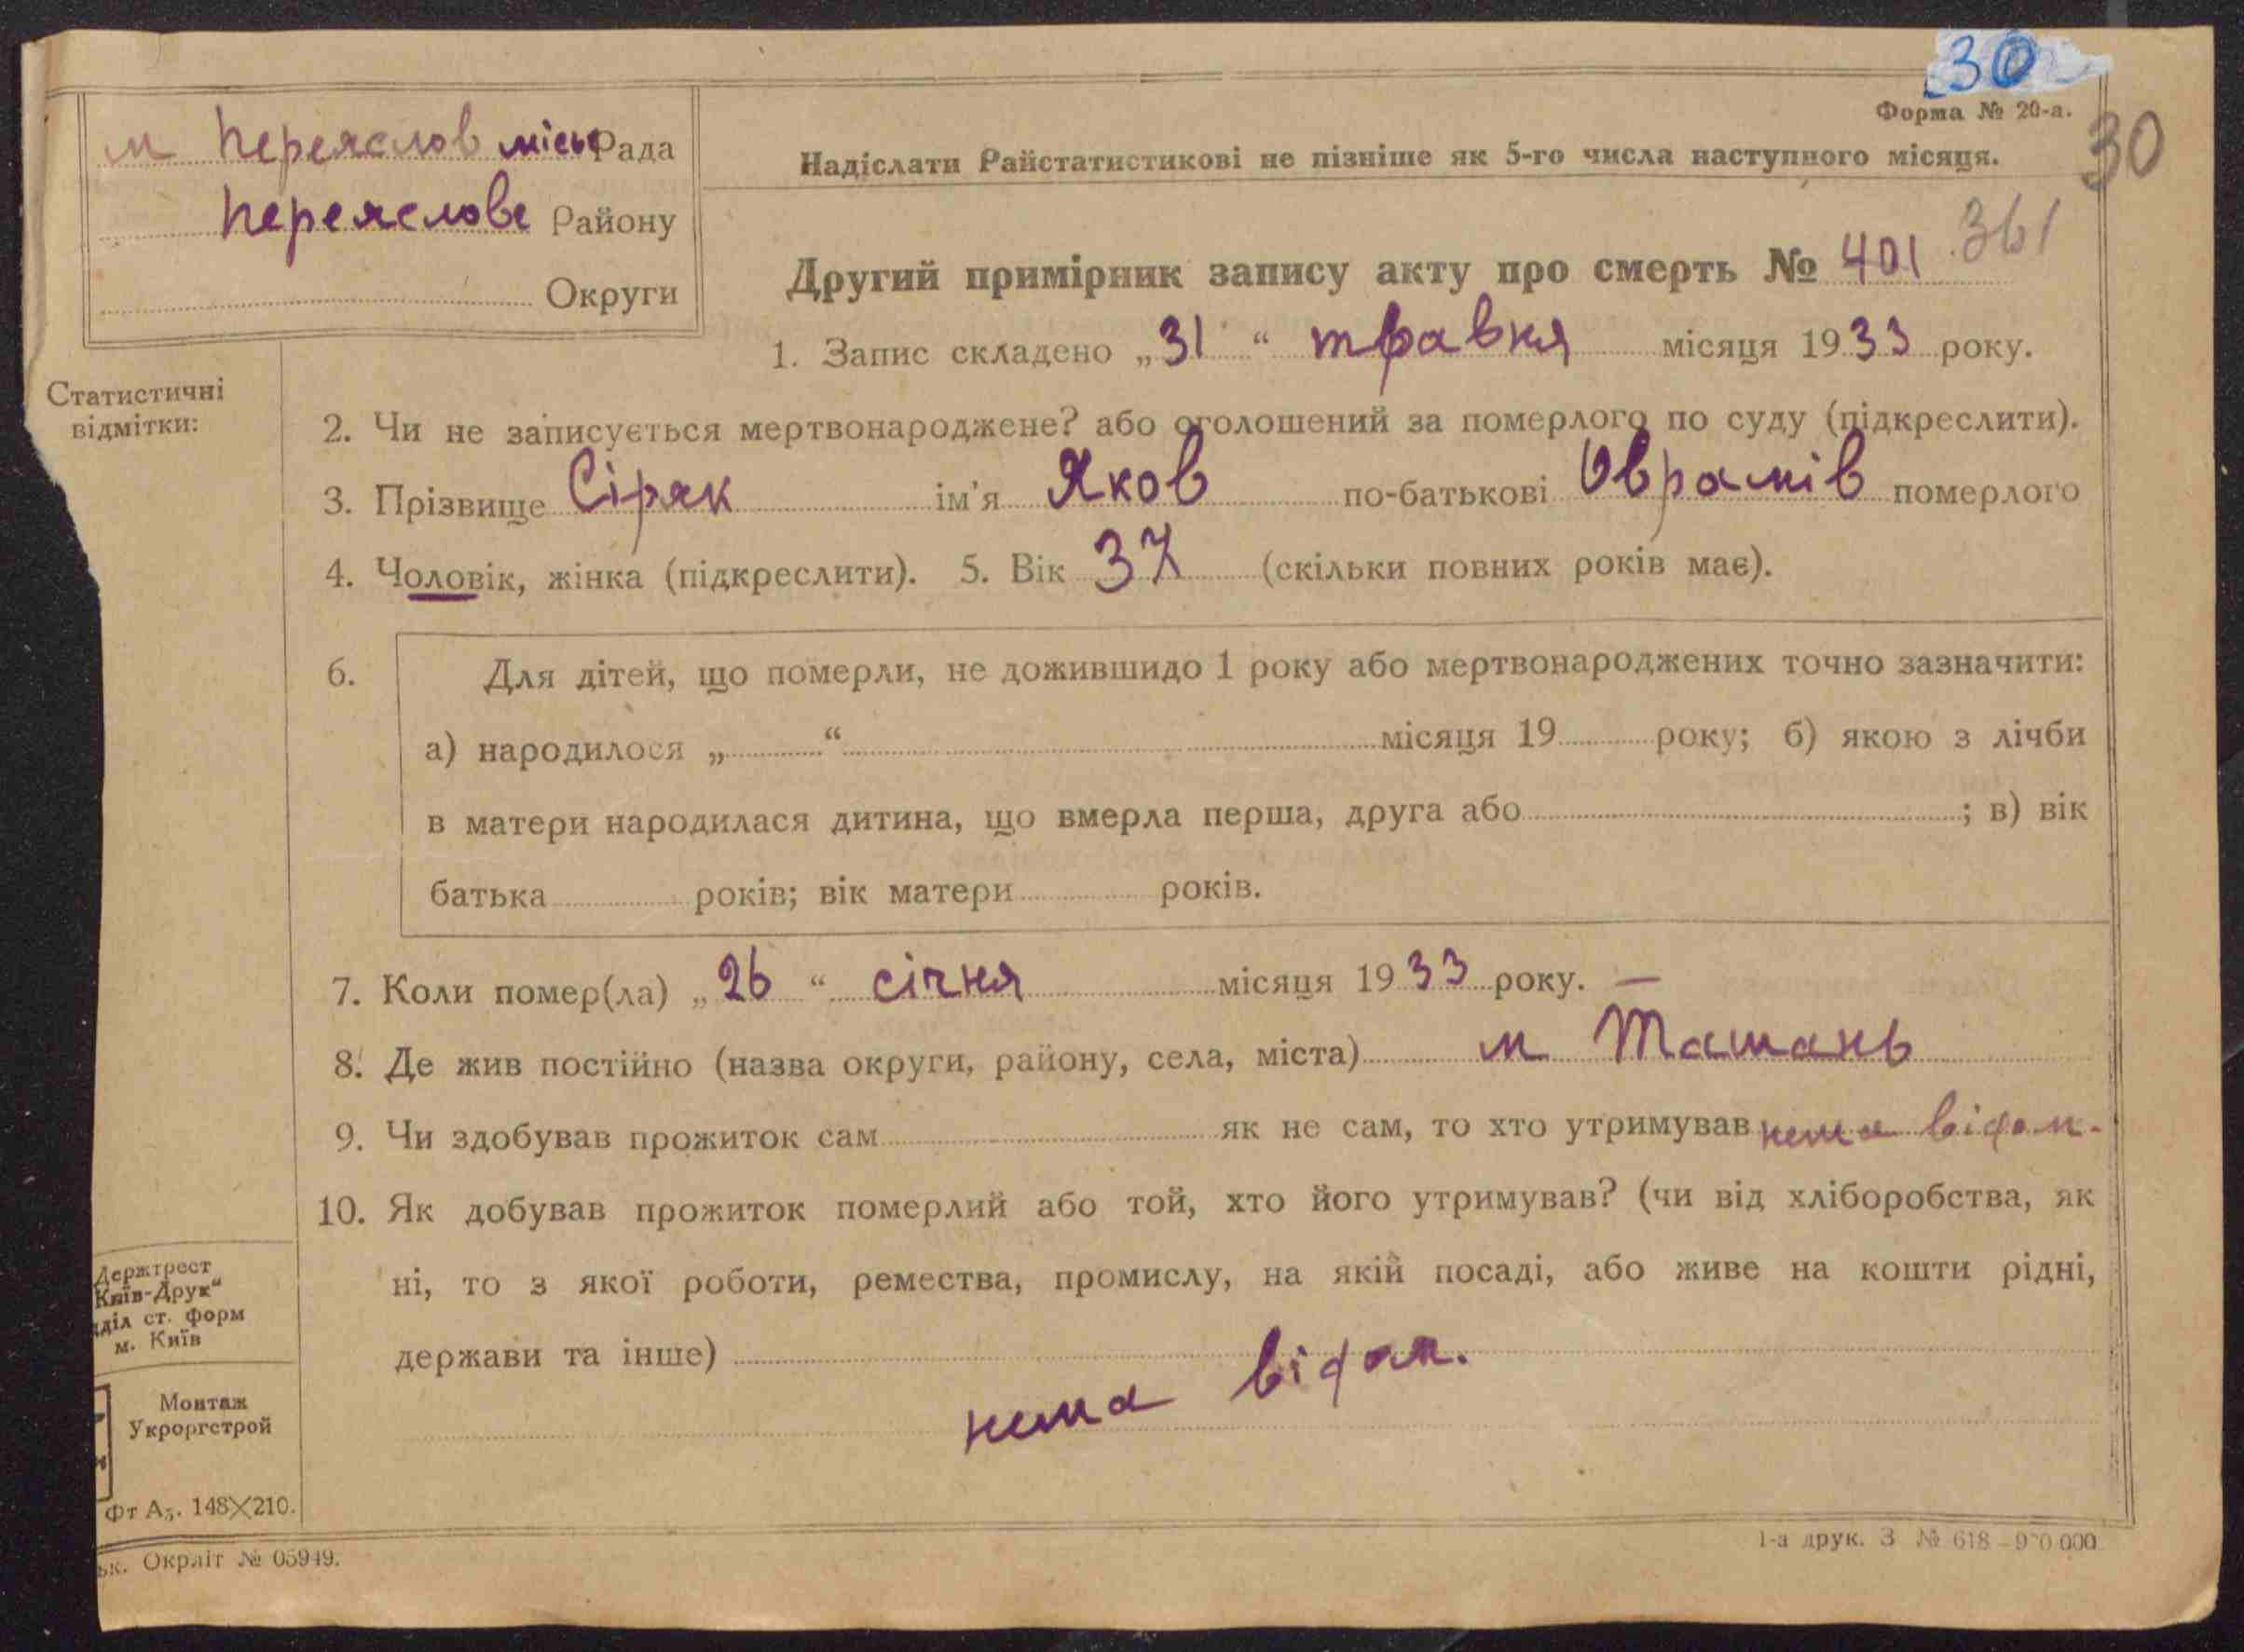 30
Форма № 20-а.
30
м Переяслов міськ Рада
Надіслати Райстатистикові не пізніше як 5-го числа наступного місяця.
Переяслове Району
Округи
361
Другий примірник запису акту про смерть № 401
1. Запис складено „31“ травня місяця 1933 року.
Статистичні
відмітки:
2. Чи не записується мертвонароджене? або оголошений за померлого по суду (підкреслити).
3. Прізвище Сіряк ім'я Яков по-батькові Оврамів померлого
4. Чоловік, жінка (підкреслити). 5. Вік 37 (скільки повних років має).
6. Для дітей, що померли, не дожившидо 1 року або мертвонароджених точно зазначити:
а) народилося „ “ місяця 19 року; б) якою з лічби
в матери народилася дитина, що вмерла перша, друга або ; в) вік
батька років; вік матери років.
7. Коли помер(ла) „26“ січня місяця 1933 року. —
8. Де жив постійно (назва округи, району, села, міста) м Ташань
9. Чи здобував прожиток сам як не сам, то хто утримував нема відом.
10. Як добував прожиток померлий або той, хто його утримував? (чи від хліборобства, як
ні, то з якої роботи, ремества, промислу, на якій посаді, або живе на кошти рідні,
держави та інше)
нема відом.
Держтрест
Київ-Друк“
діл ст. форм
м. Київ
Монтаж
Укроргстрой
Фт А₅. 148×210.
ьк. Окрліт № 05949.
1-а друк. З № 618—